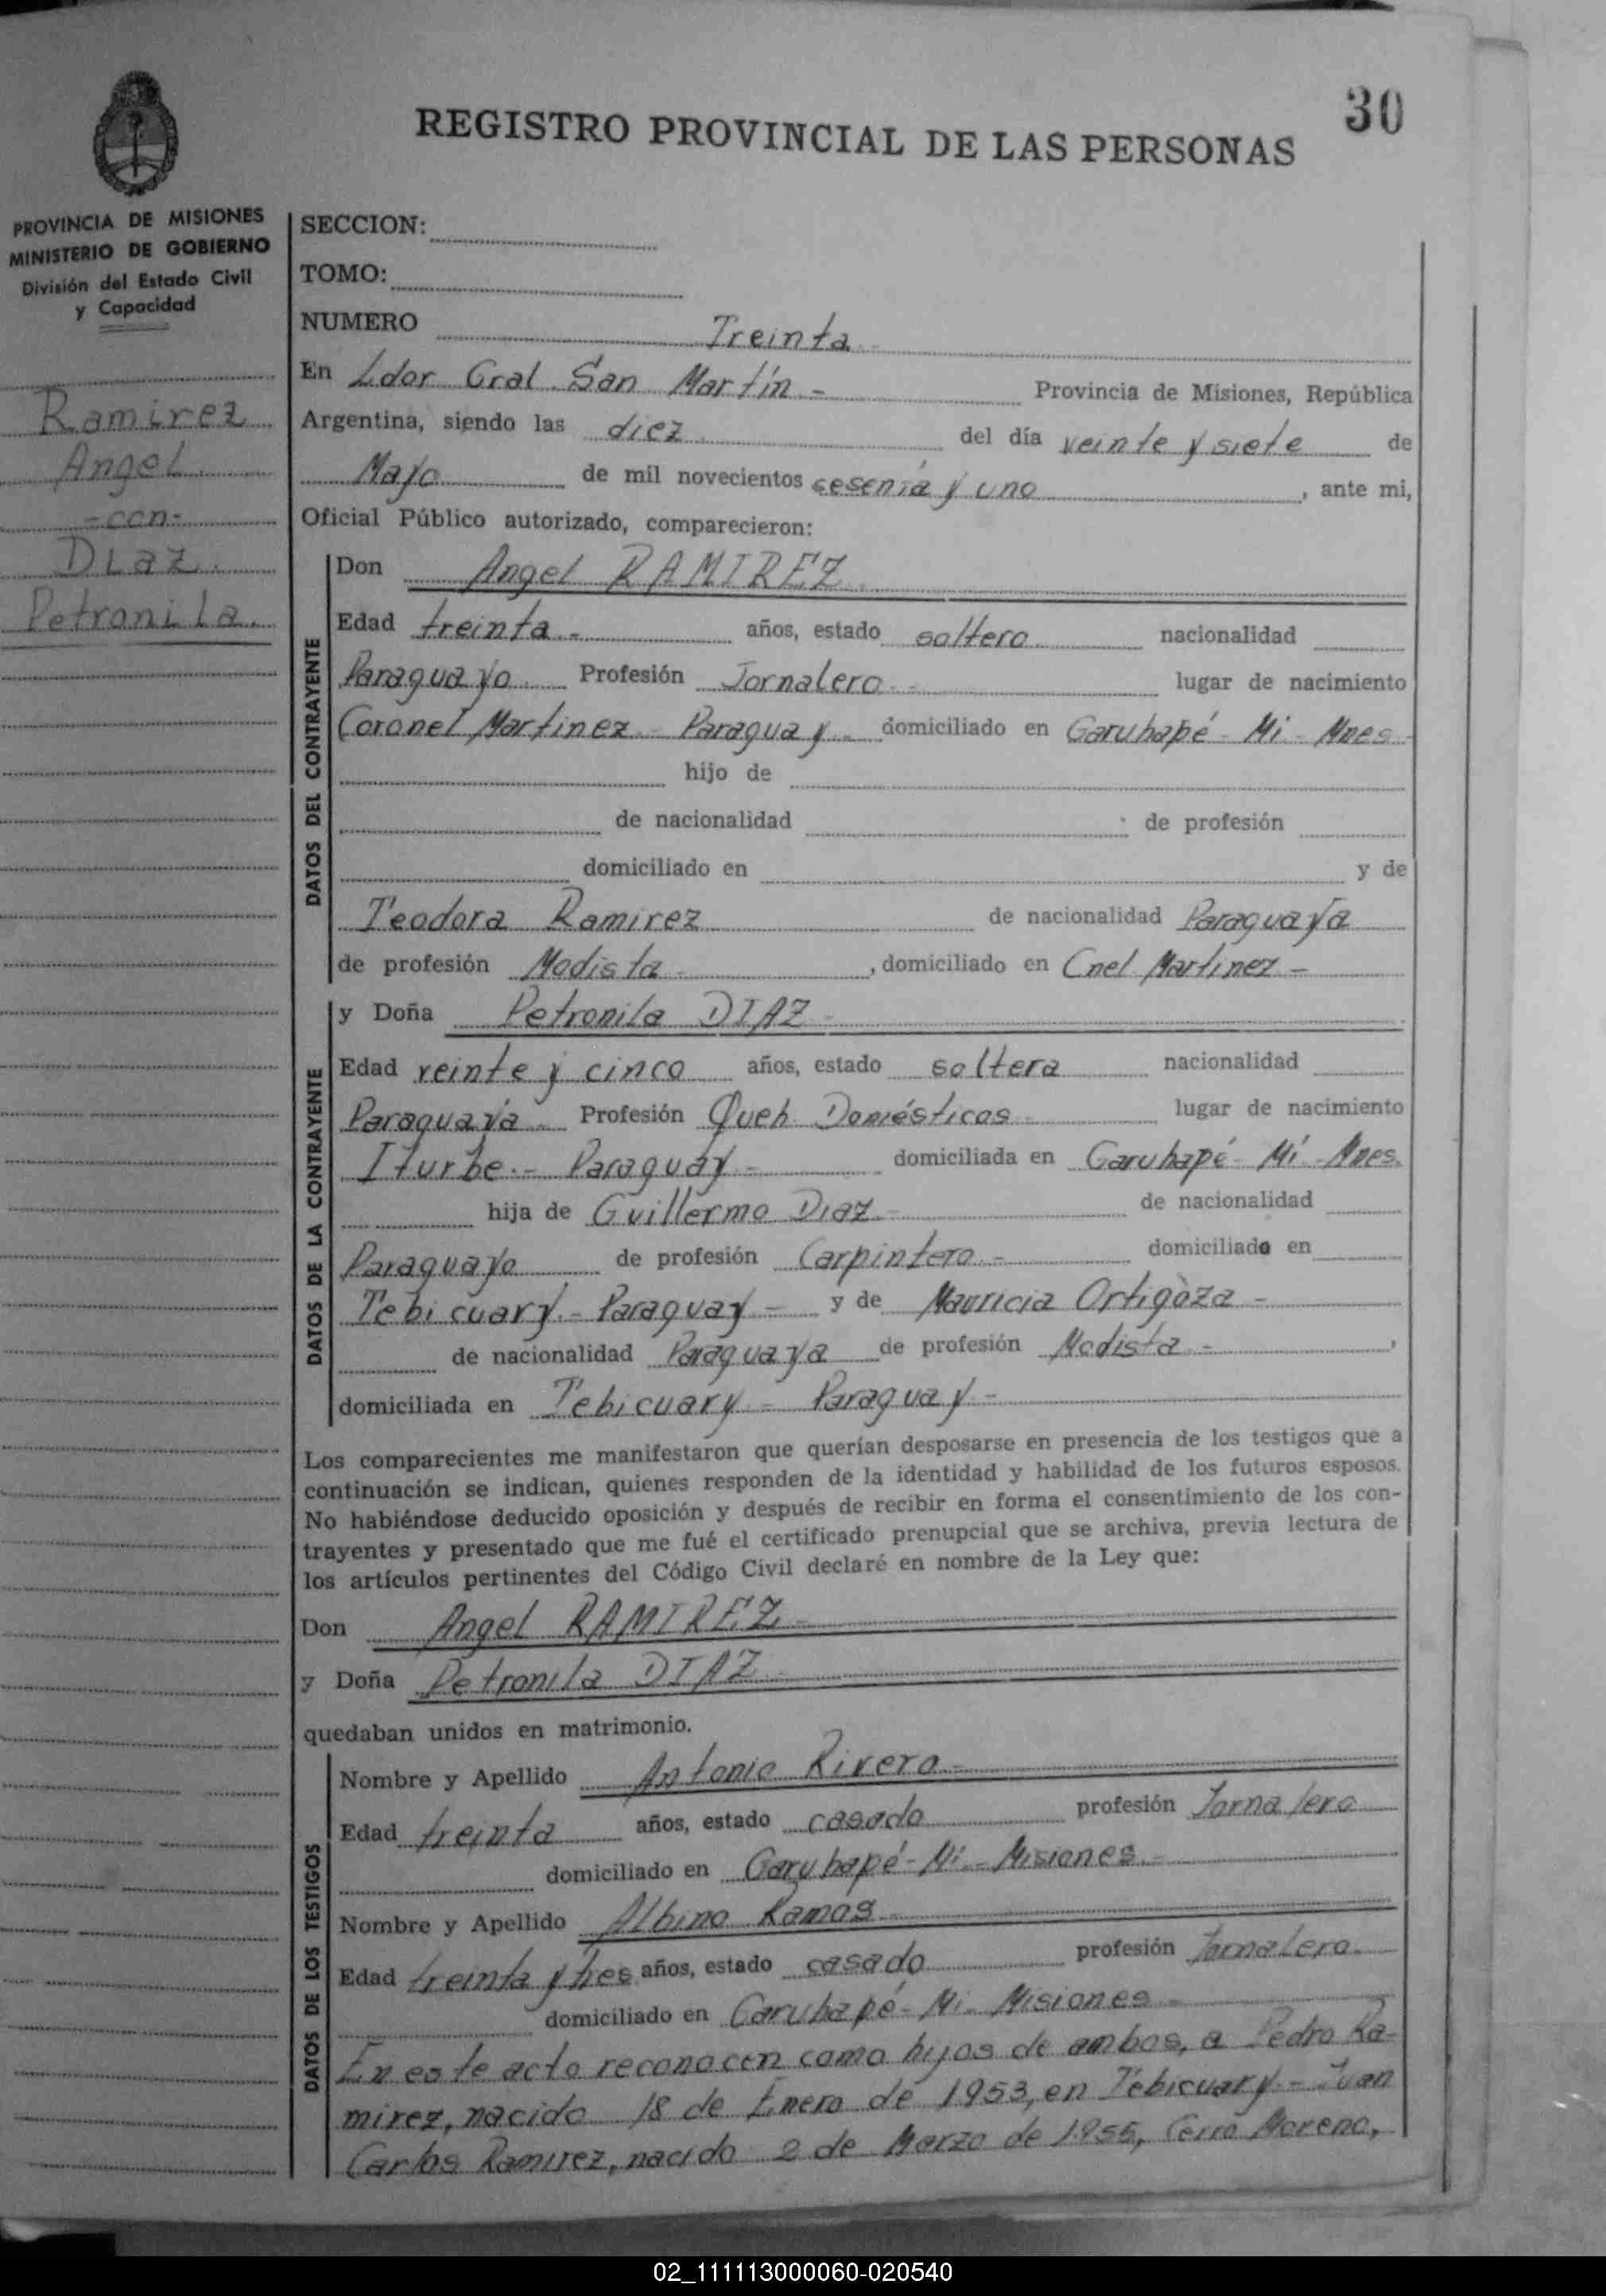 30
REGISTRO PROVINCIAL DE LAS PERSONAS
PROVINCIA DE MISIONES
MINISTERIO DE GOBIERNO
División del Estado Civil
y Capacidad
Ramirez
Angel
-con-
Diaz
Petronila.
SECCION:
TOMO:
NUMERO Treinta
En Ldor Gral San Martín - Provincia de Misiones, República
Argentina, siendo las diez del día veinte y siete de
Mayo de mil novecientos sesenta y uno, ante mi,
Oficial Público autorizado, comparecieron:
DATOS DEL CONTRAYENTE
Don Angel RAMIREZ
Edad treinta - años, estado soltero nacionalidad
Paraguayo Profesión Jornalero - lugar de nacimiento
Coronel Martinez - Paraguay - domiciliado en Garuhapé - Mi - Mnes -
hijo de
de nacionalidad de profesión
domiciliado en y de
Teodora Ramirez de nacionalidad Paraguaya
de profesión Modista - , domiciliado en Cnel Martinez -
DATOS DE LA CONTRAYENTE
y Doña Petronila DIAZ -
Edad veinte y cinco años, estado soltera nacionalidad
Paraguaya - Profesión Queh. Domésticos - lugar de nacimiento
Iturbe. - Paraguay - domiciliada en Garuhapé - Mi - Mnes.
hija de Guillermo Diaz - de nacionalidad
Paraguayo de profesión Carpintero - domiciliado en
Tebicuary. - Paraguay - y de Mauricia Ortigoza -
de nacionalidad Paraguaya de profesión Modista - ,
domiciliada en Tebicuary - Paraguay -
Los comparecientes me manifestaron que querían desposarse en presencia de los testigos que a
continuación se indican, quienes responden de la identidad y habilidad de los futuros esposos.
No habiéndose deducido oposición y después de recibir en forma el consentimiento de los con-
trayentes y presentado que me fué el certificado prenupcial que se archiva, previa lectura de
los artículos pertinentes del Código Civil declaré en nombre de la Ley que:
Don Angel RAMIREZ -
y Doña Petronila DIAZ -
quedaban unidos en matrimonio.
DATOS DE LOS TESTIGOS
Nombre y Apellido Antonio Rivero -
Edad treinta años, estado casado profesión Jornalero
domiciliado en Garuhapé - Mi - Misiones -
Nombre y Apellido Albino Ramos -
Edad treinta y tres años, estado casado profesión Jornalero.
domiciliado en Garuhapé - Mi - Misiones -
En este acto reconocen como hijos de ambos, a Pedro Ra-
mirez, nacido 18 de Enero de 1953, en Tebicuary. - Juan
Carlos Ramirez, nacido 2 de Marzo de 1955, Cerro Moreno,
02_111113000060-020540